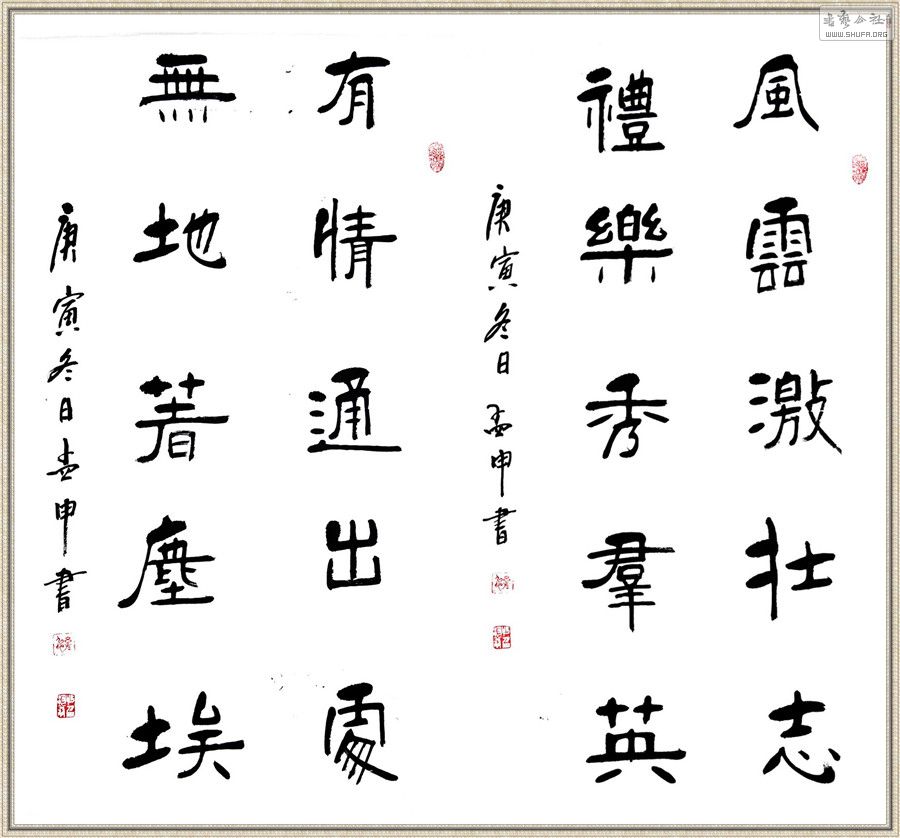 風雲激壯志
禮樂秀羣英
庚寅冬日孟申書
有情通出處
無地着塵埃
庚寅冬日孟申書
書藝公社
WWW.SHUFA.ORG